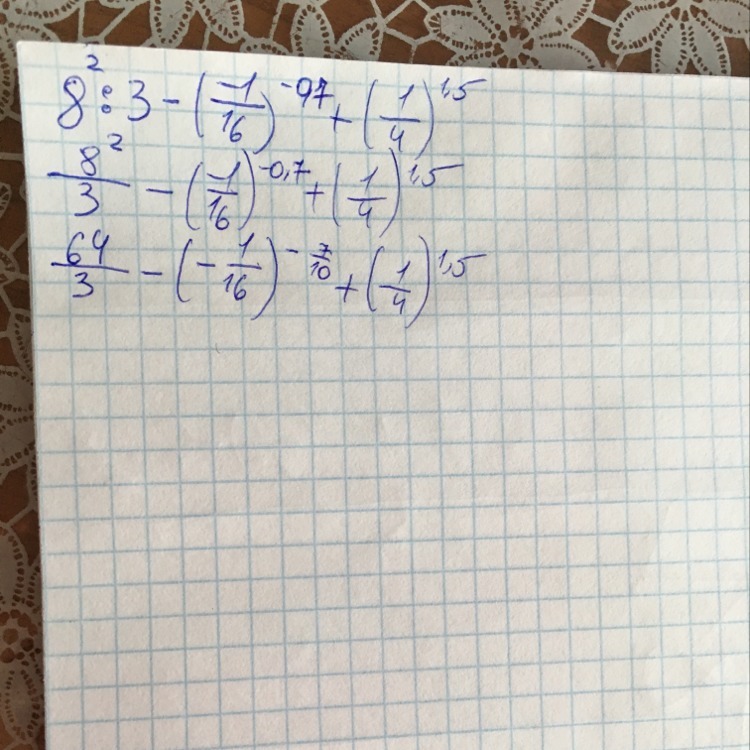 8² : 3 - (-1/16)^-0,7 + (1/4)^1,5
8²/3 - (-1/16)^-0,7 + (1/4)^1,5
64/3 - (-1/16)^-7/10 + (1/4)^1,5